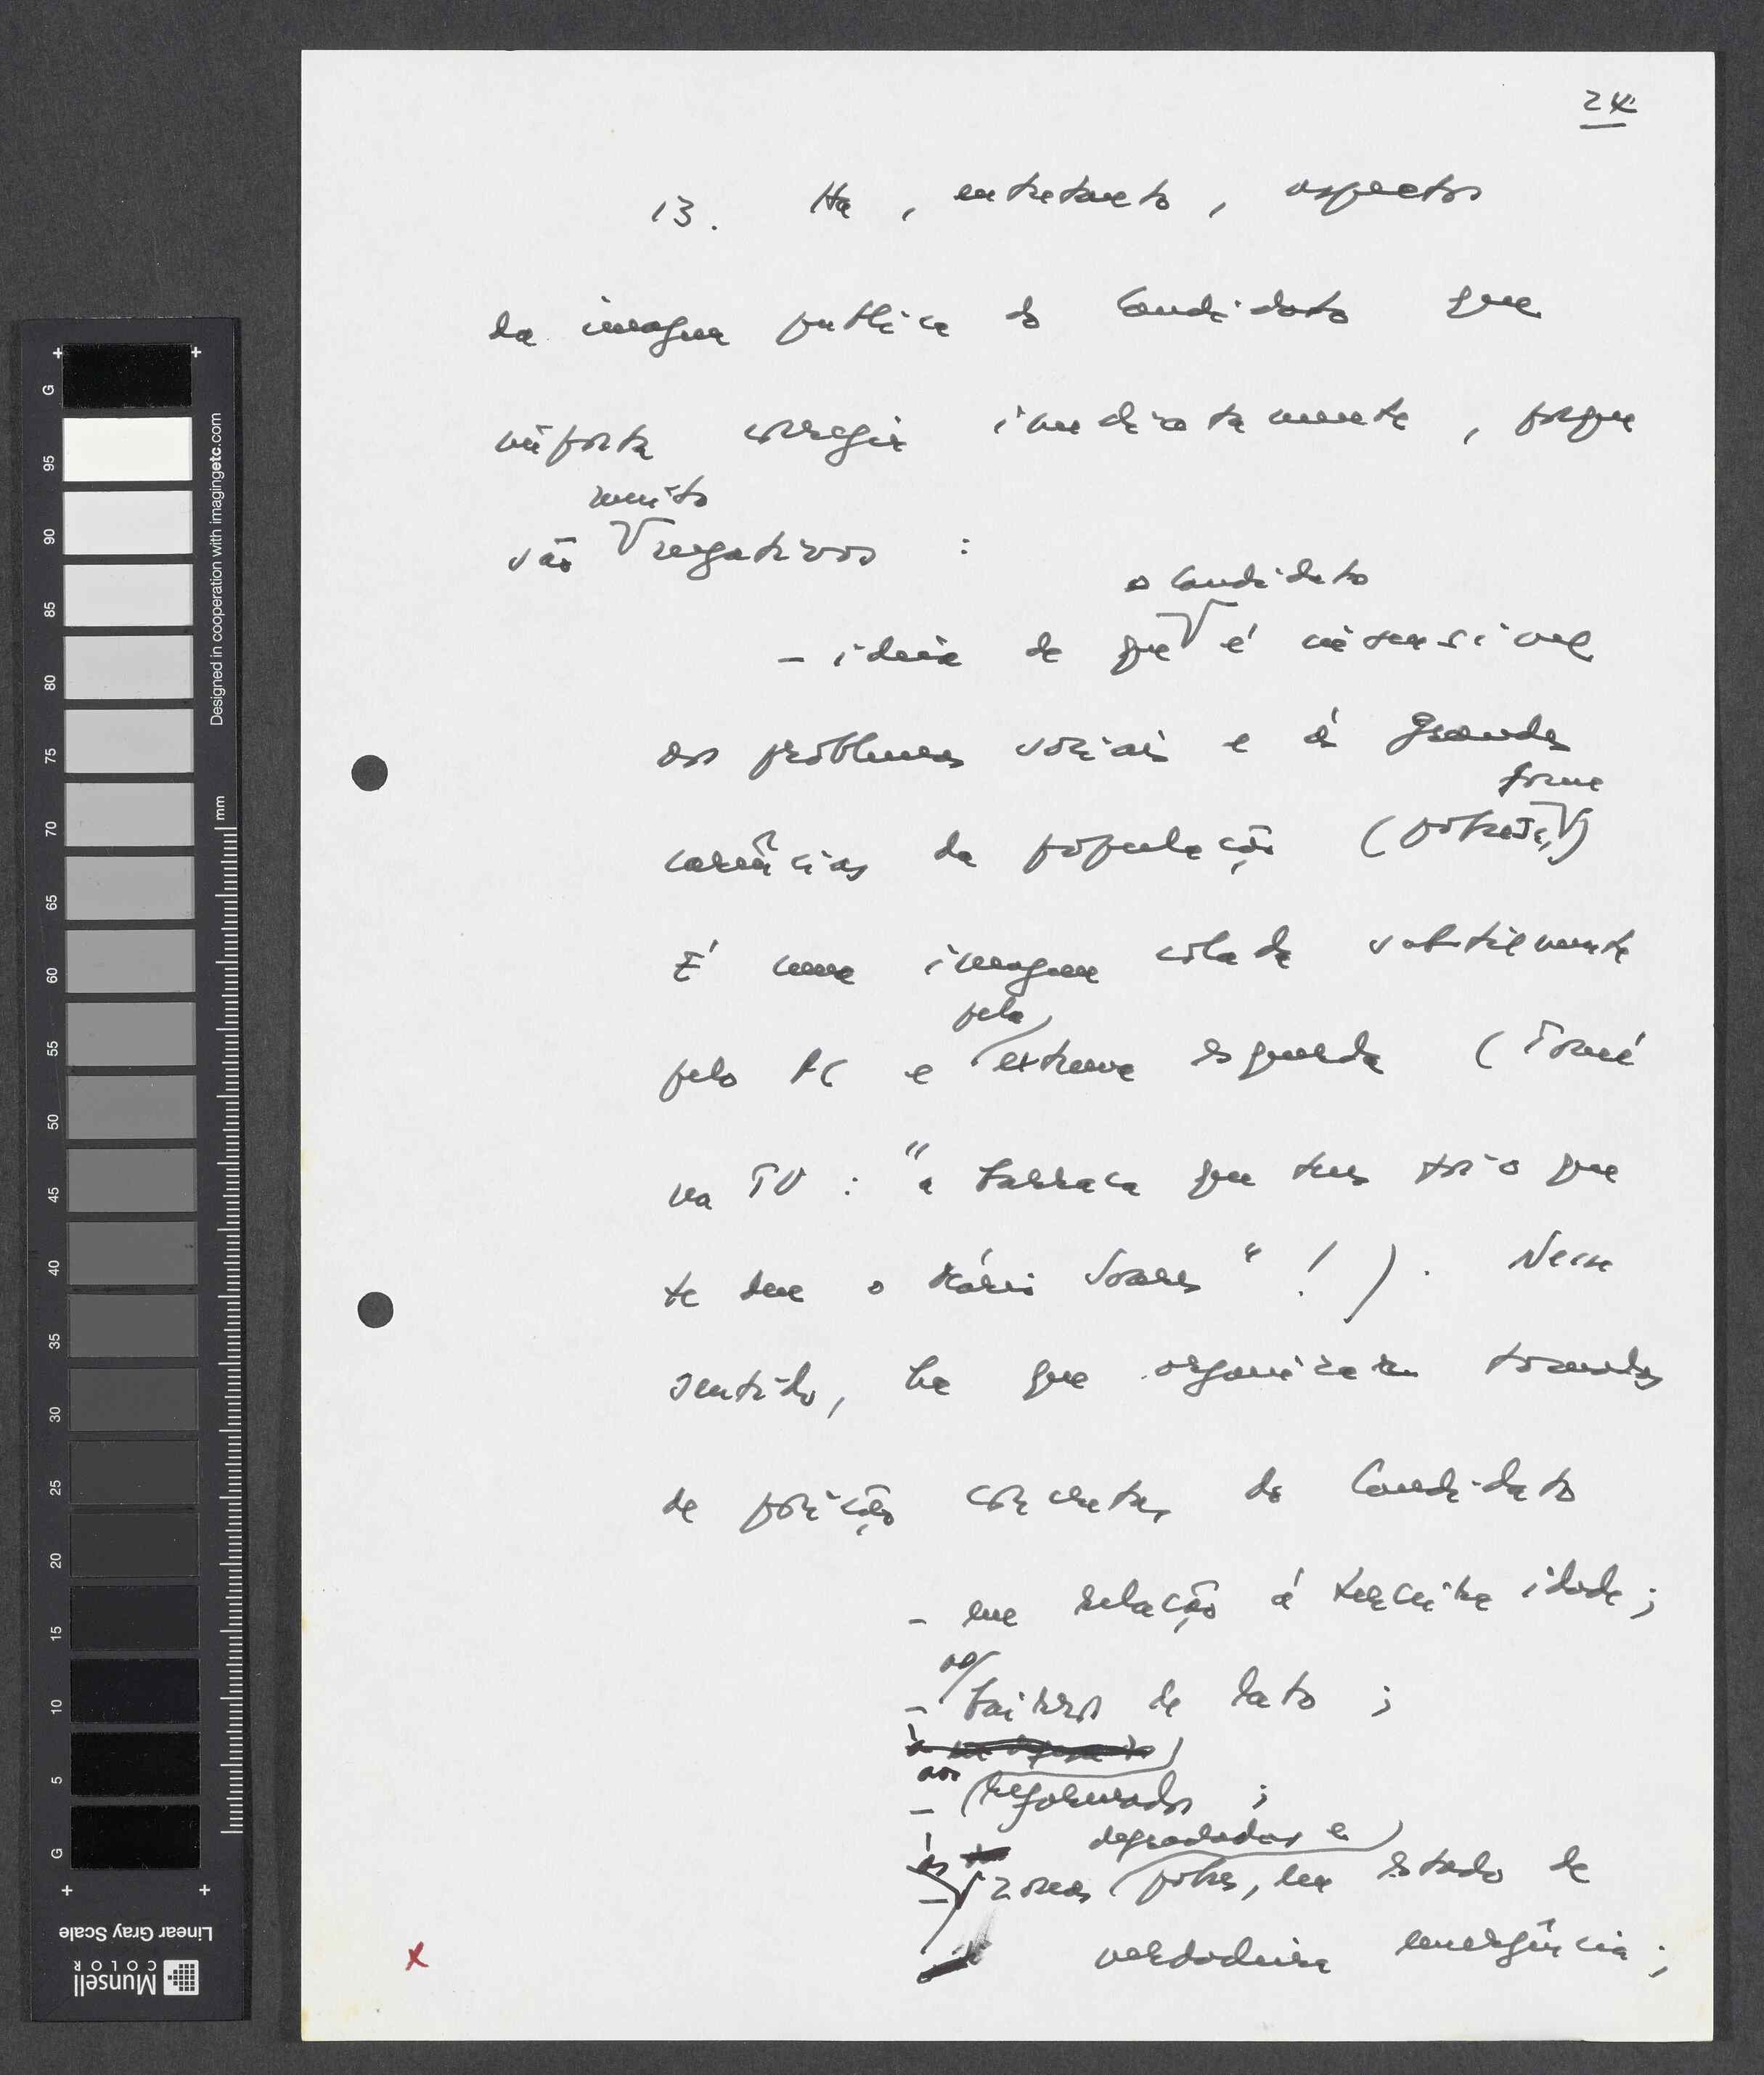 24
13. Há, entretanto, aspectos
da imagem publica do Candidato que
importa corrigir imediatamente, porque
muito
são negativos :
o Candidato
- ideia de que é insensivel
aos problemas sociais e ás grandes
fome
carências da população (pobreza,)
É uma imagem colada subtilmente
pela
pelo PC e extrema esquerda (Tomé
na TV : "a barraca que tens foi o que
te deu o Mário Soares" ! ). Nesse
sentido, ha que organizar tomadas
de posição concretas do Candidato
- em relação á terceira idade ;
aos
- bairros de lata ;
aos
- reformados ;
ás degradadas e
- zonas pobres, em estado de
verdadeira emergência ;
x
G
95
90
85
80
75
70
65
60
55
50
45
40
35
30
25
20
15
10
5
G
mm
Designed in cooperation with imagingetc.com
Munsell
COLOR
Linear Gray Scale